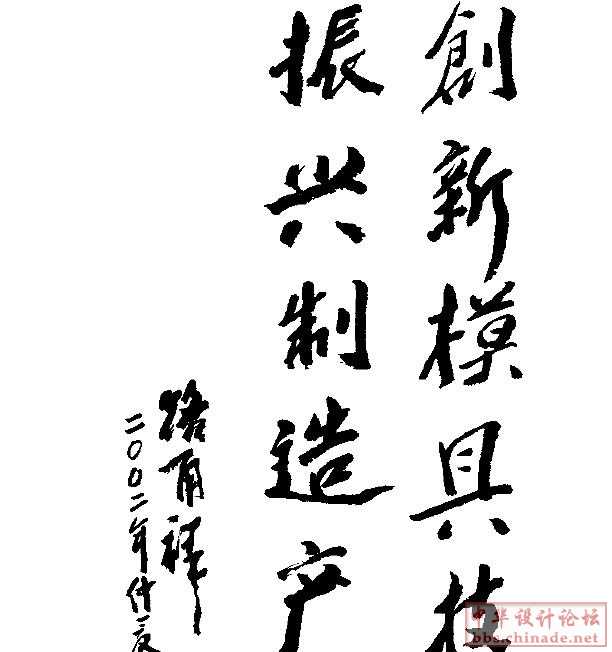 創新模具技
振兴制造产
路甬祥
二〇〇二年仲夏
中华设计论坛
bbs.chinade.net